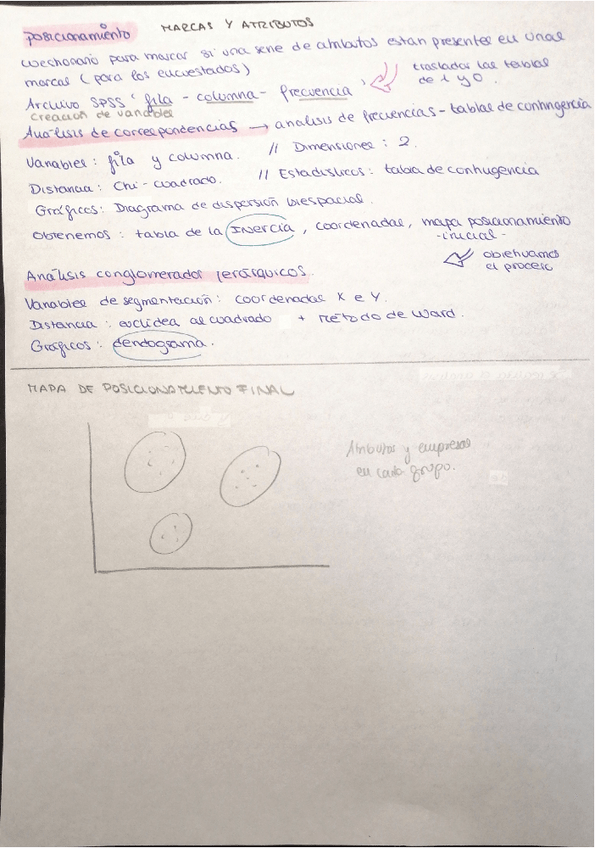 posicionamiento MARCAS Y ATRIBUTOS
cuestionario para marcar si una serie de atributos están presentes en unas
marcas (para los encuestados)
trasladar las tablas
de 1 y 0.
Archivo SPSS: fila - columna - frecuencia
creación de variables
Análisis de correspondencias → análisis de frecuencias - tablas de contingencia
Variables: fila y columna. // Dimensiones: 2.
Distancia: Chi-cuadrado. // Estadísticos: tabla de contingencia
Gráficos: Diagrama de dispersión biespacial.
Obtenemos: tabla de la Inercia, coordenadas, mapa posicionamiento
-inicial-
Análisis conglomerados jerárquicos.
el proceso
Variables de segmentación: coordenadas X e Y.
Distancia: euclídea al cuadrado + Método de Ward.
Gráficos: dendograma.
MAPA DE POSICIONAMIENTO FINAL
Atributos y empresas
en cada grupo.